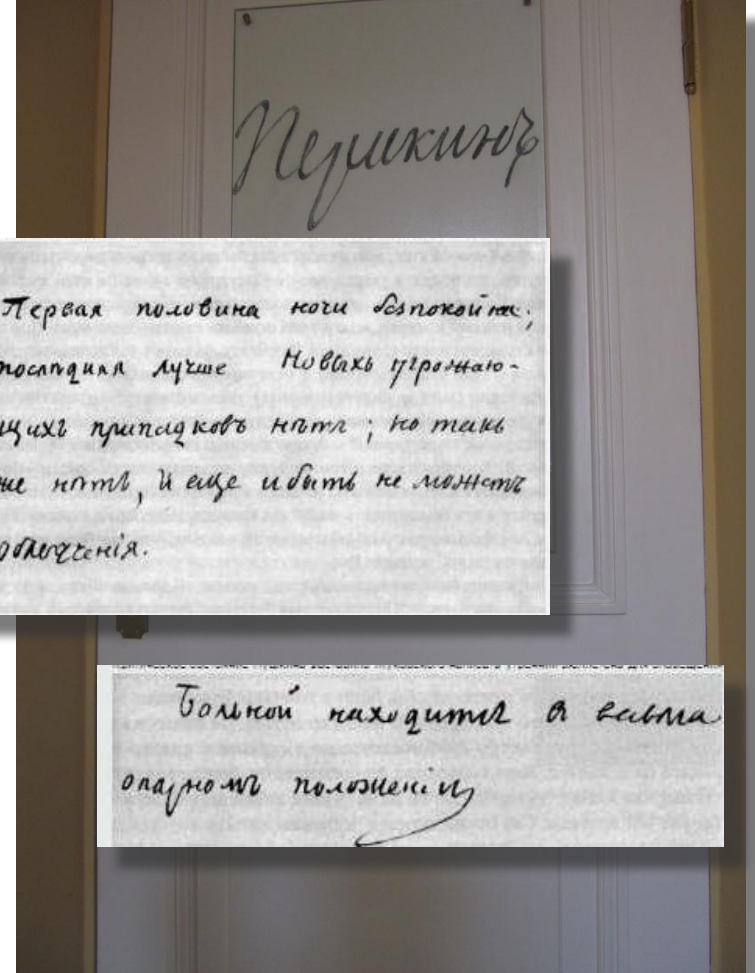 Пушкинъ
Первая половина ночи безпокойна;
послѣдняя лучше Новыхъ угрожаю-
щихъ припадковъ нѣтъ; но такъ
же нѣтъ, и еще и быть не можетъ
облегченія.
Больной находится въ весьма
опасномъ положеніи